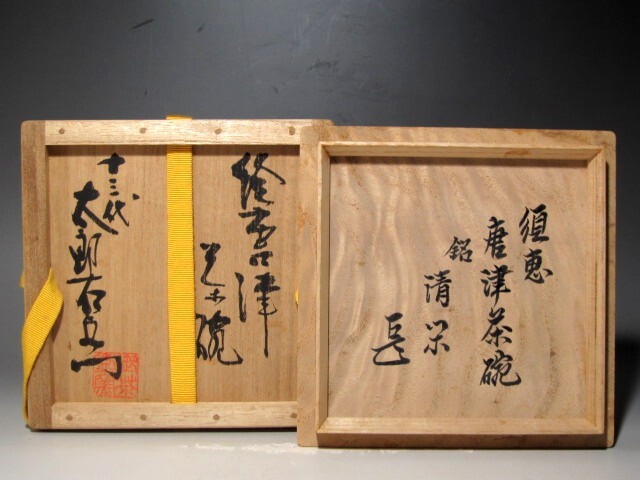 須恵
唐津茶碗
銘
清栄
絵唐津
茶碗
十三代
太郎右衛門